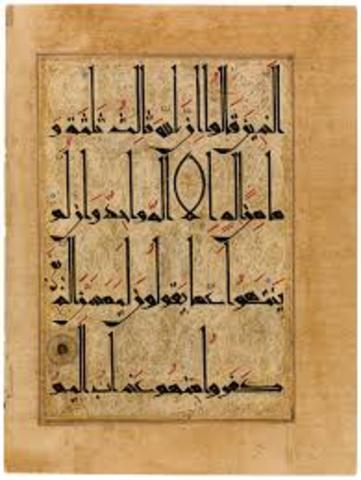 الذين قالوا إن الله ثالث ثلثة و
ما من إله إلا إله واحد وإن لم
ينتهوا عما يقولون ليمسن الذين
كفروا منهم عذاب أليم